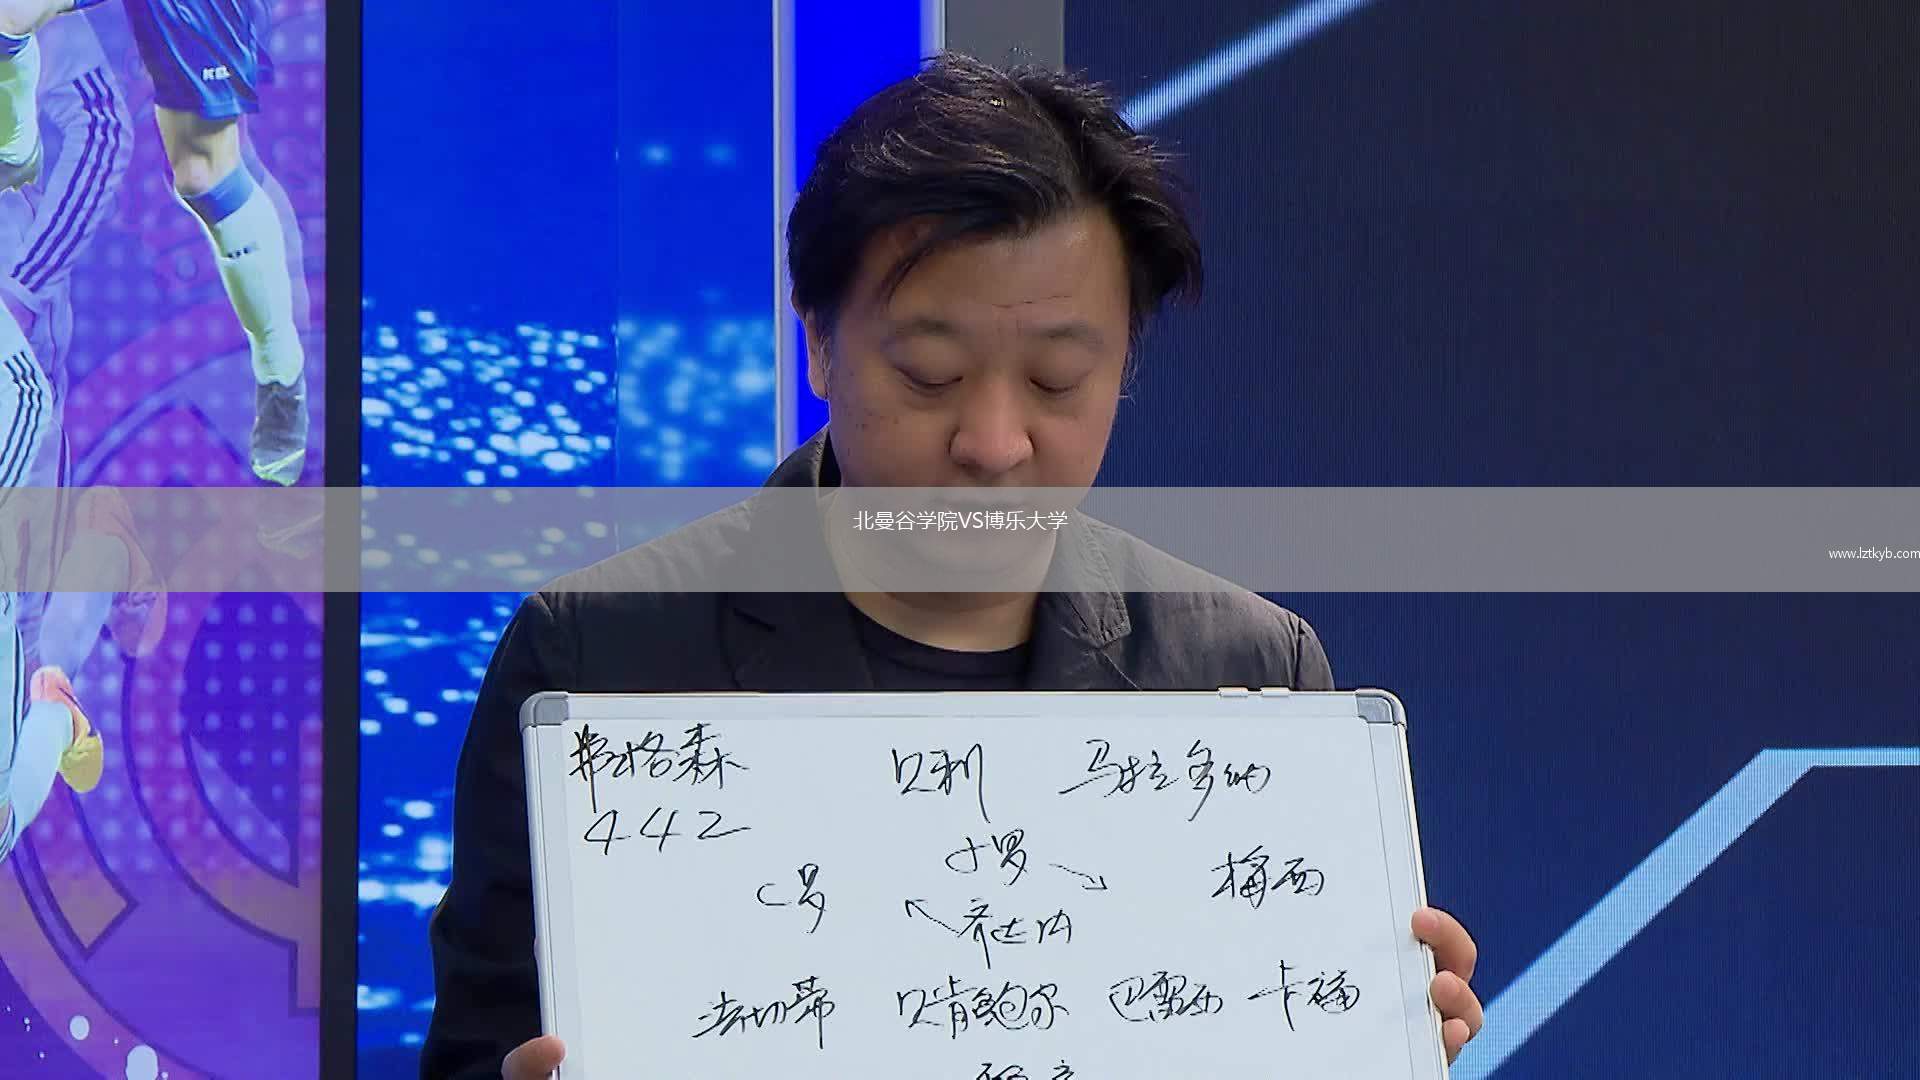 北曼谷学院VS博乐大学
www.lztkyb.com
弗格森 贝利 马拉多纳
442
小罗
C罗 梅西
齐达内
法切蒂 贝肯鲍尔 巴雷西 卡福